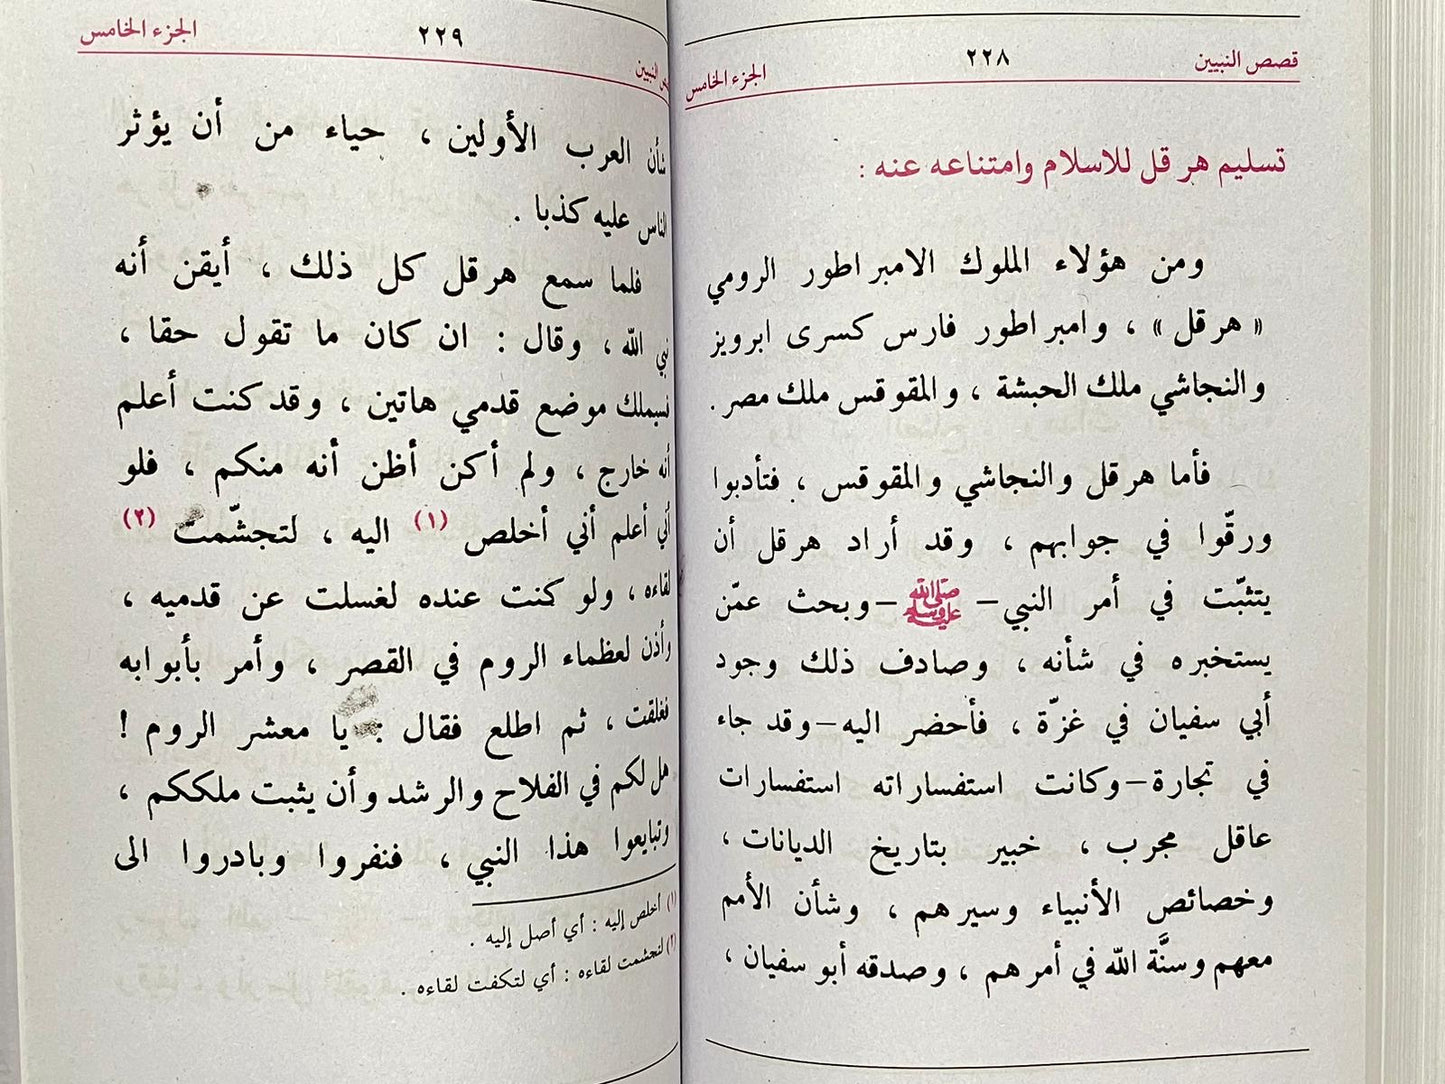 قصص النبيين ٢٢٨ الجزء الخامس
تسليم هرقل للاسلام وامتناعه عنه :
ومن هؤلاء الملوك الامبراطور الرومي
« هرقل » ، وامبراطور فارس كسرى ابرويز
والنجاشي ملك الحبشة ، والمقوقس ملك مصر .
فأما هرقل والنجاشي والمقوقس ، فتأدبوا
ورقّوا في جوابهم ، وقد أراد هرقل أن
يتثبّت في أمر النبي – ﷺ – وبحث عمّن
يستخبره في شأنه ، وصادف ذلك وجود
أبي سفيان في غزّة ، فأحضر اليه – وقد جاء
في تجارة – وكانت استفساراته استفسارات
عاقل مجرب ، خبير بتاريخ الديانات ،
وخصائص الأنبياء وسيرهم ، وشأن الأمم
معهم وسنَّة الله في أمرهم ، وصدقه أبو سفيان ،
النبيين ٢٢٩ الجزء الخامس
شأن العرب الأولين ، حياء من أن يؤثر
الناس عليه كذبا .
فلما سمع هرقل كل ذلك ، أيقن أنه
نبي الله ، وقال : ان كان ما تقول حقا ،
فسيملك موضع قدمي هاتين ، وقد كنت أعلم
أنه خارج ، ولم أكن أظن أنه منكم ، فلو
أني أعلم أني أخلص (١) اليه ، لتجشّمت (٢)
لقاءه ، ولو كنت عنده لغسلت عن قدميه ،
وأذن لعظماء الروم في القصر ، وأمر بأبوابه
فغلقت ، ثم اطلع فقال : يا معشر الروم !
هل لكم في الفلاح والرشد وأن يثبت ملككم ،
وتبايعوا هذا النبي ، فنفروا وبادروا الى
(١) أخلص إليه : أي أصل إليه .
(٢) لتجشمت لقاءه : أي لتكفت لقاءه .